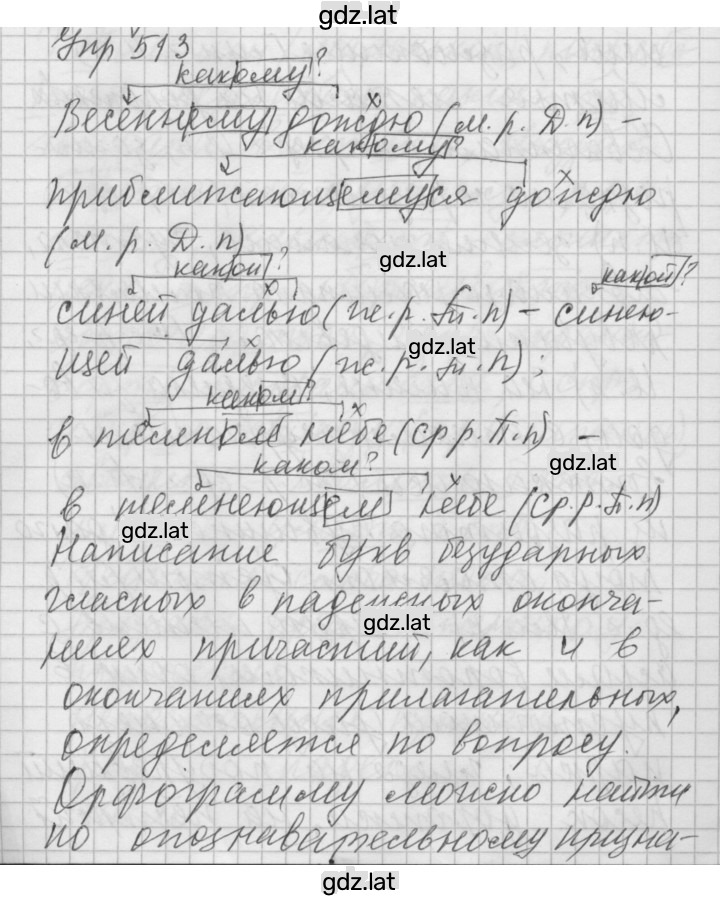 gdz.lat
Упр 513
какому?
Весеннему дождю (м.р. Д.п) -
какому?
приближающемуся дождю
(м.р. Д.п)
gdz.lat
какой?
какой?
синей далью (ж.р. Т.п) - синею-
gdz.lat
щей далью (ж.р. Т.п);
каком?
в темном небе (ср р. П.п) -
gdz.lat
каком?
в темнеющем небе (ср.р. П.п)
gdz.lat
Написание букв безударных
гласных в падежных оконча-
gdz.lat
ниях причастий, как и в
окончаниях прилагательных,
определяется по вопросу.
Орфограмму можно найти
по опознавательному призна-
gdz.lat